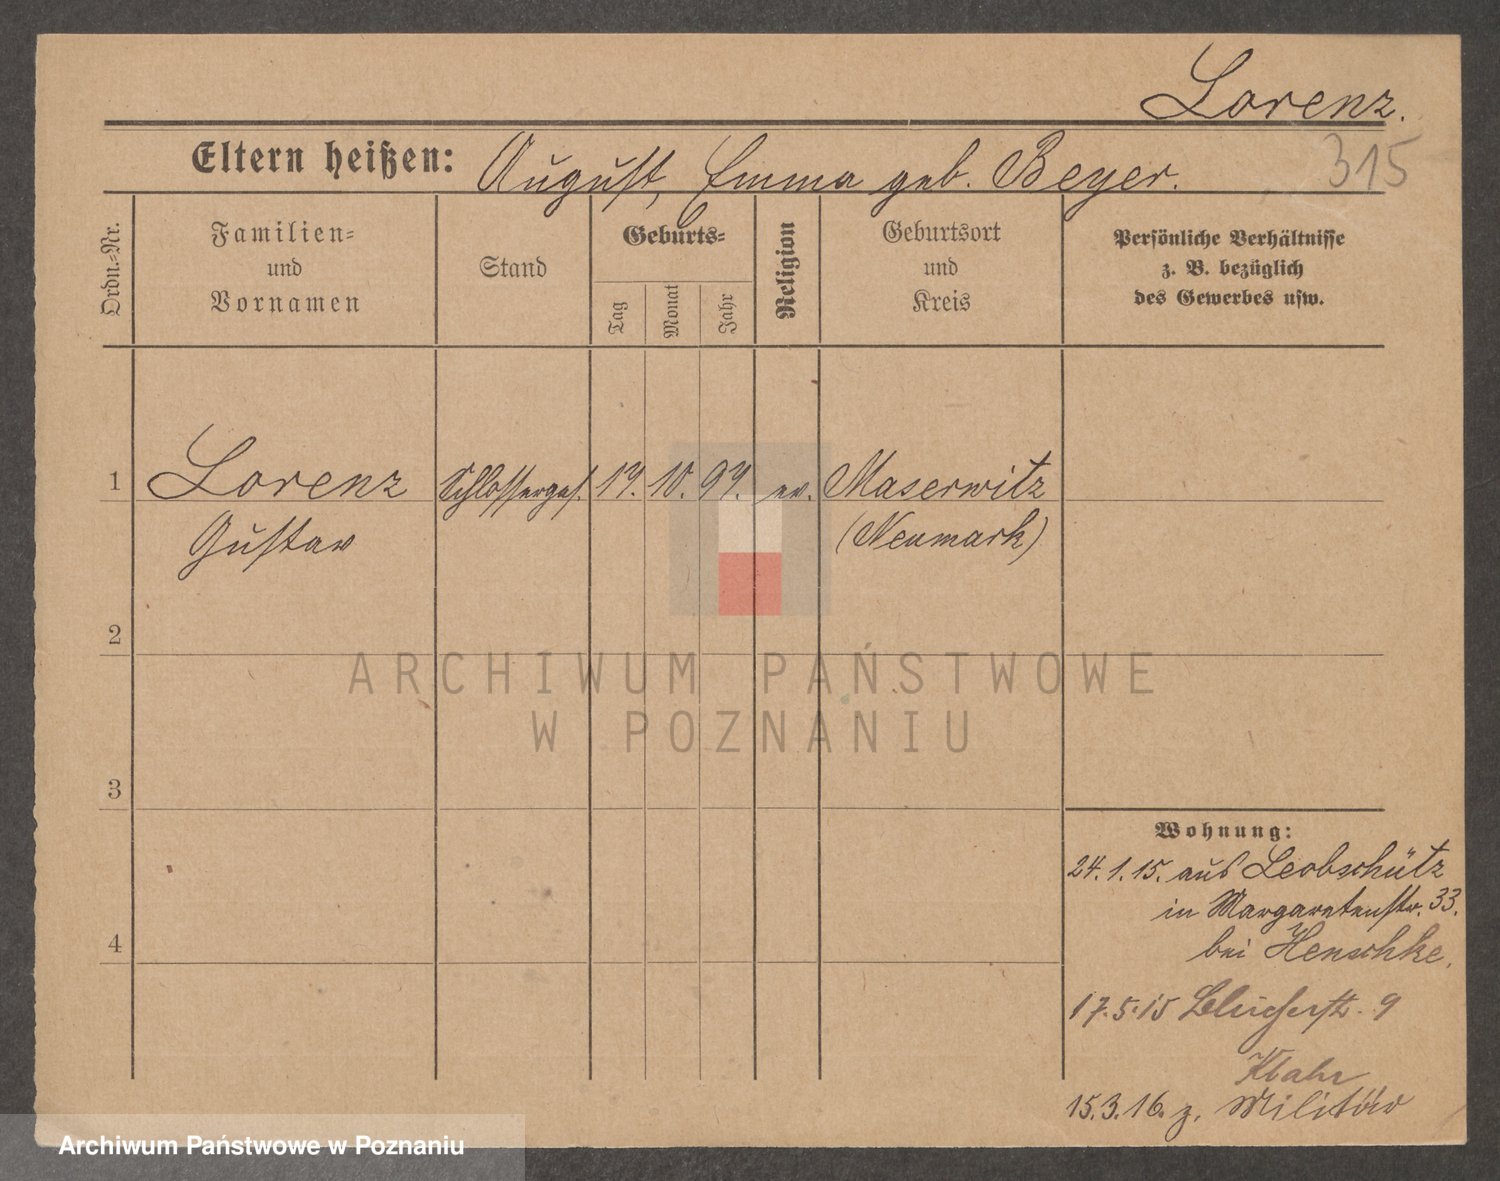 Lorenz.
315
Eltern heißen: August, Emma geb. Beyer.
Ordn.-Nr.
Familien-
und
Vornamen
Stand
Geburts-
Tag
Monat
Jahr
Religion
Geburtsort
und
Kreis
Persönliche Verhältnisse
z. B. bezüglich
des Gewerbes usw.
1 Lorenz Schlosserges. 10. ev. Maserwitz
Gustav (Neumark)
2
ARCHIWUM PAŃSTWOWE
W POZNANIU
3
Wohnung:
24.1.15. aus Leobschütz
in Margaretenstr. 33.
bei Henschke.
4
17.5.15 Blücherstr. 9
15.3.16. z. Militär
Archiwum Państwowe w Poznaniu